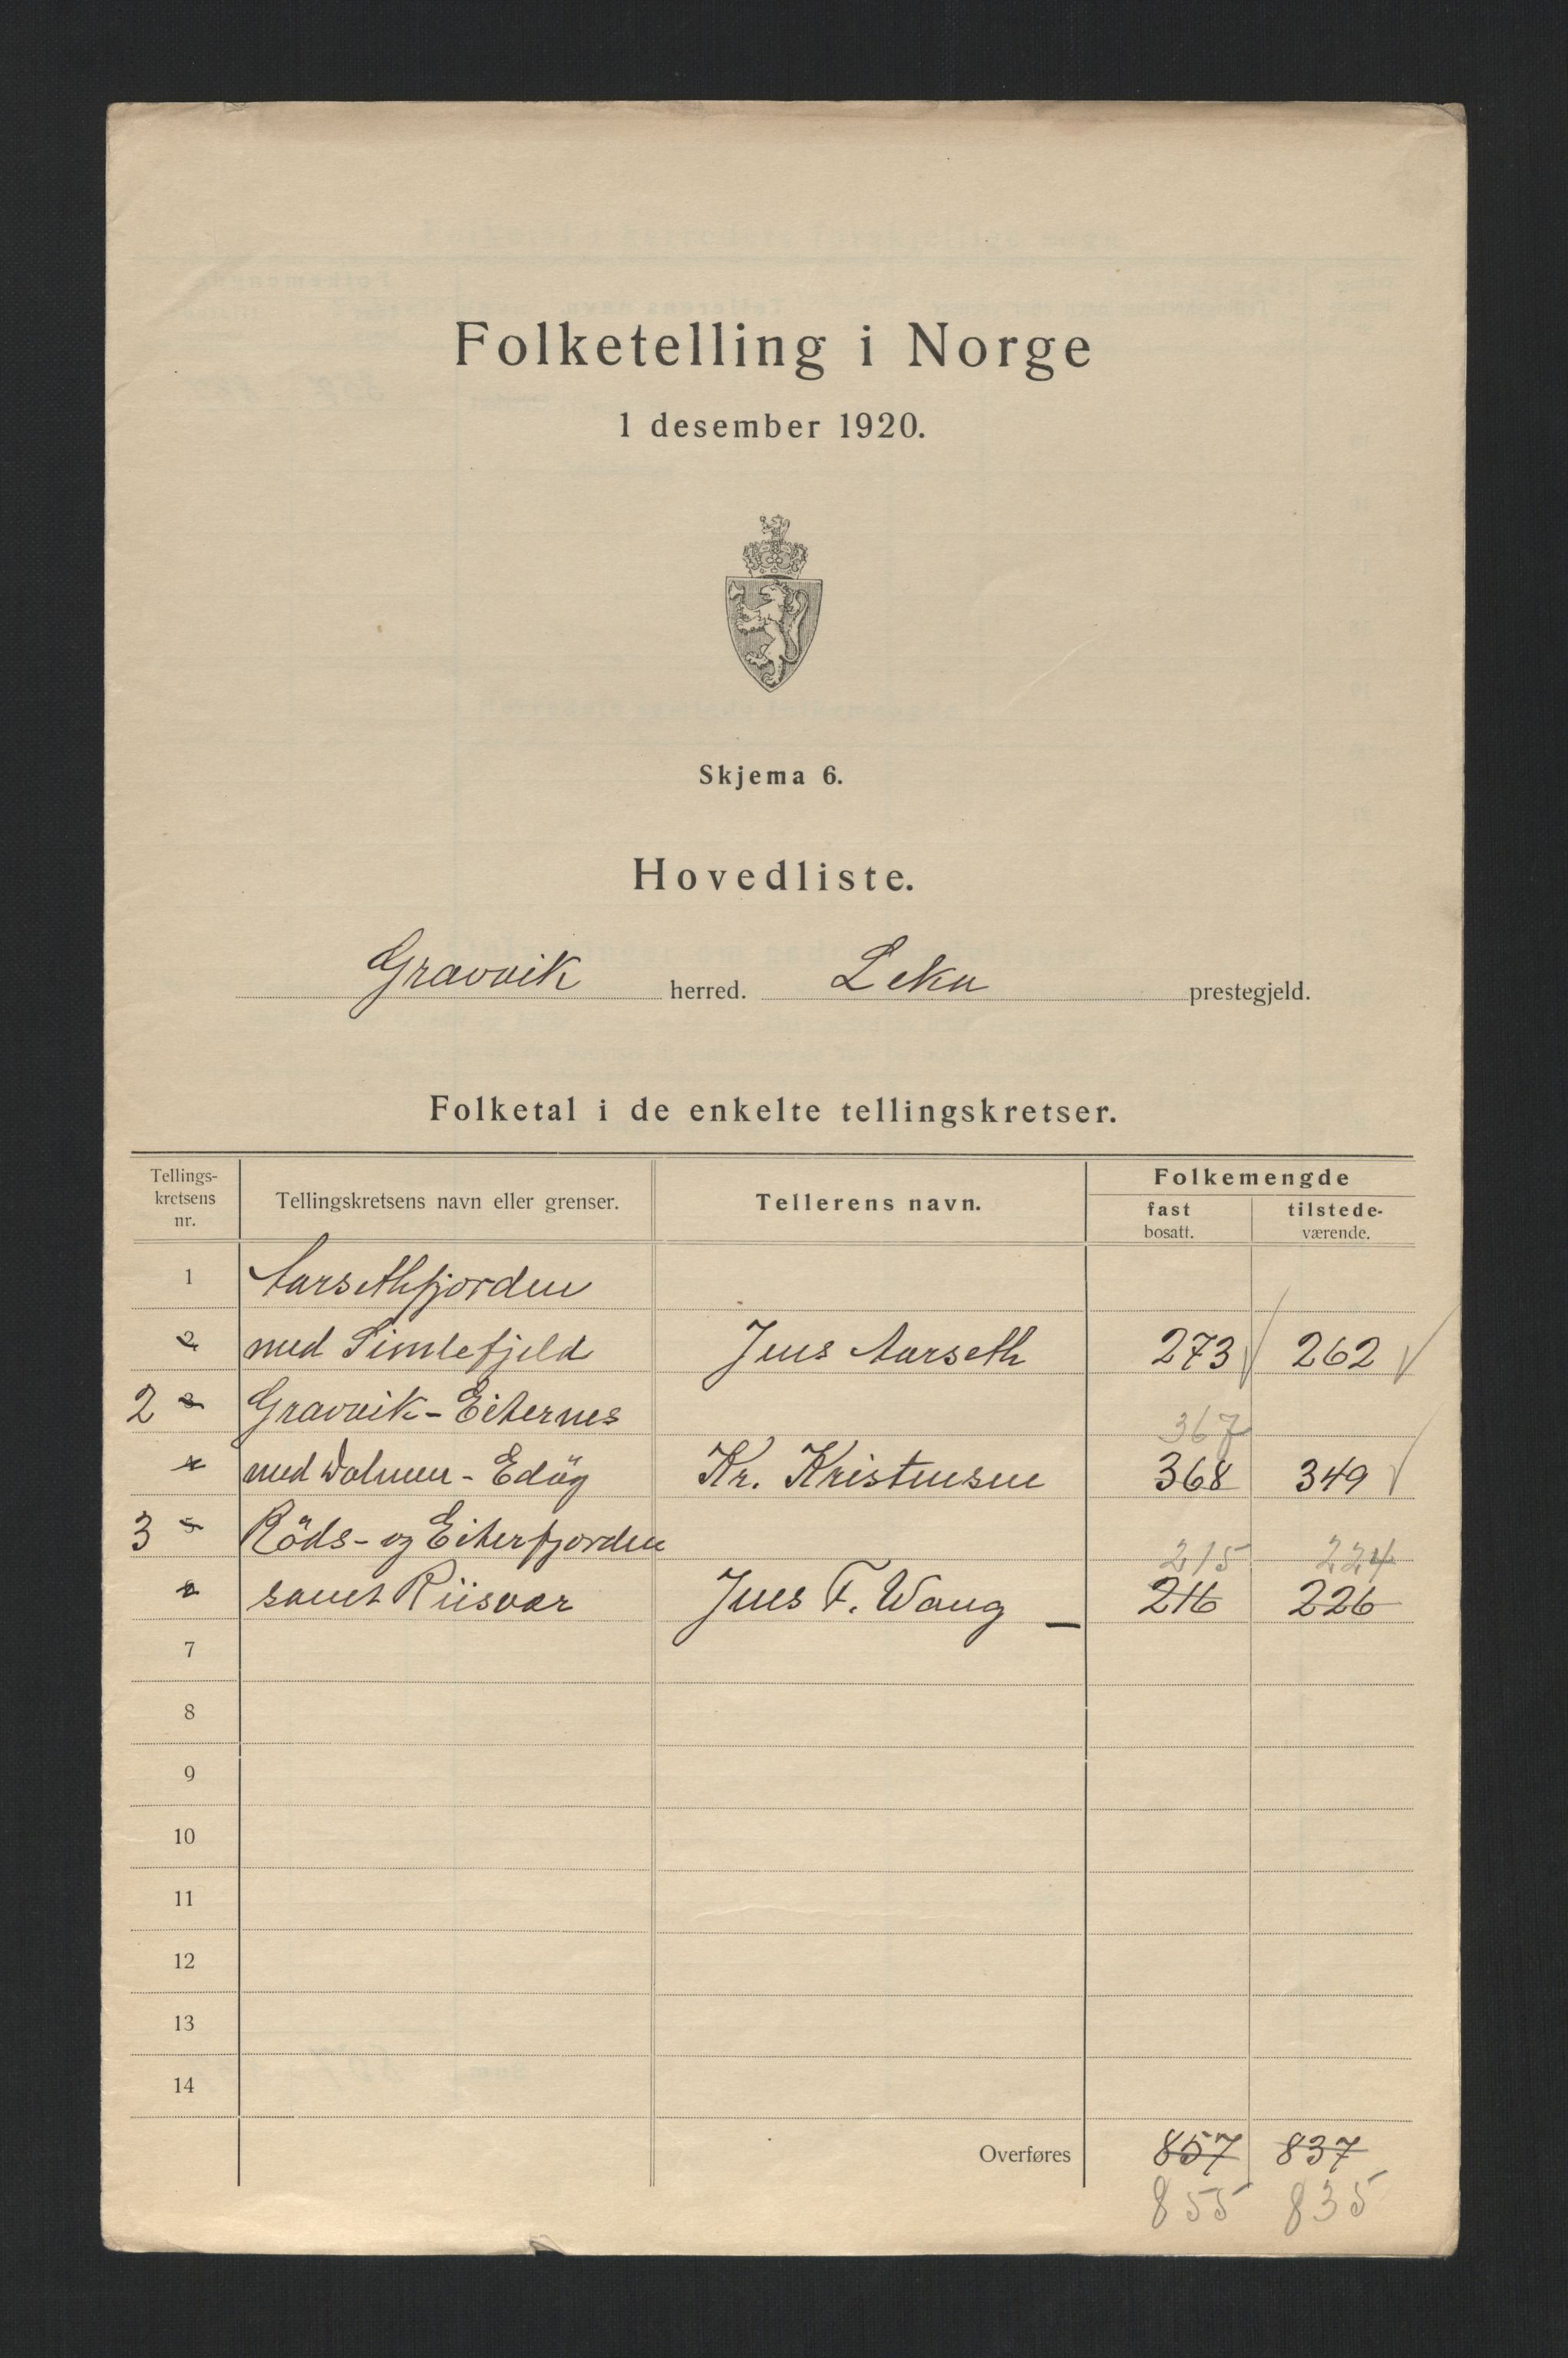 Folketelling i Norge
1 desember 1920.
Skjema 6.
Hovedliste.
Gravvik herred. Leka prestegjeld.
Folketal i de enkelte tellingskretser.
Tellings-
kretsens
nr.
Tellingskretsens navn eller grenser.
Tellerens navn.
Folkemengde
fast
bosatt.
tilstede-
værende.
1 Aarsethfjorden
2 med Simlefjeld Jens Aarseth 273 262
2 3 Gravvik-Eiternes
367
4 med Dolmen-Edög Kr. Kristensen 368 349
3 5 Röds- og Eiterfjorden
215 224
6 samt Riisvær Jens F. Waag 216 226
7
8
9
10
11
12
13
14
Overføres 857 837
855 835